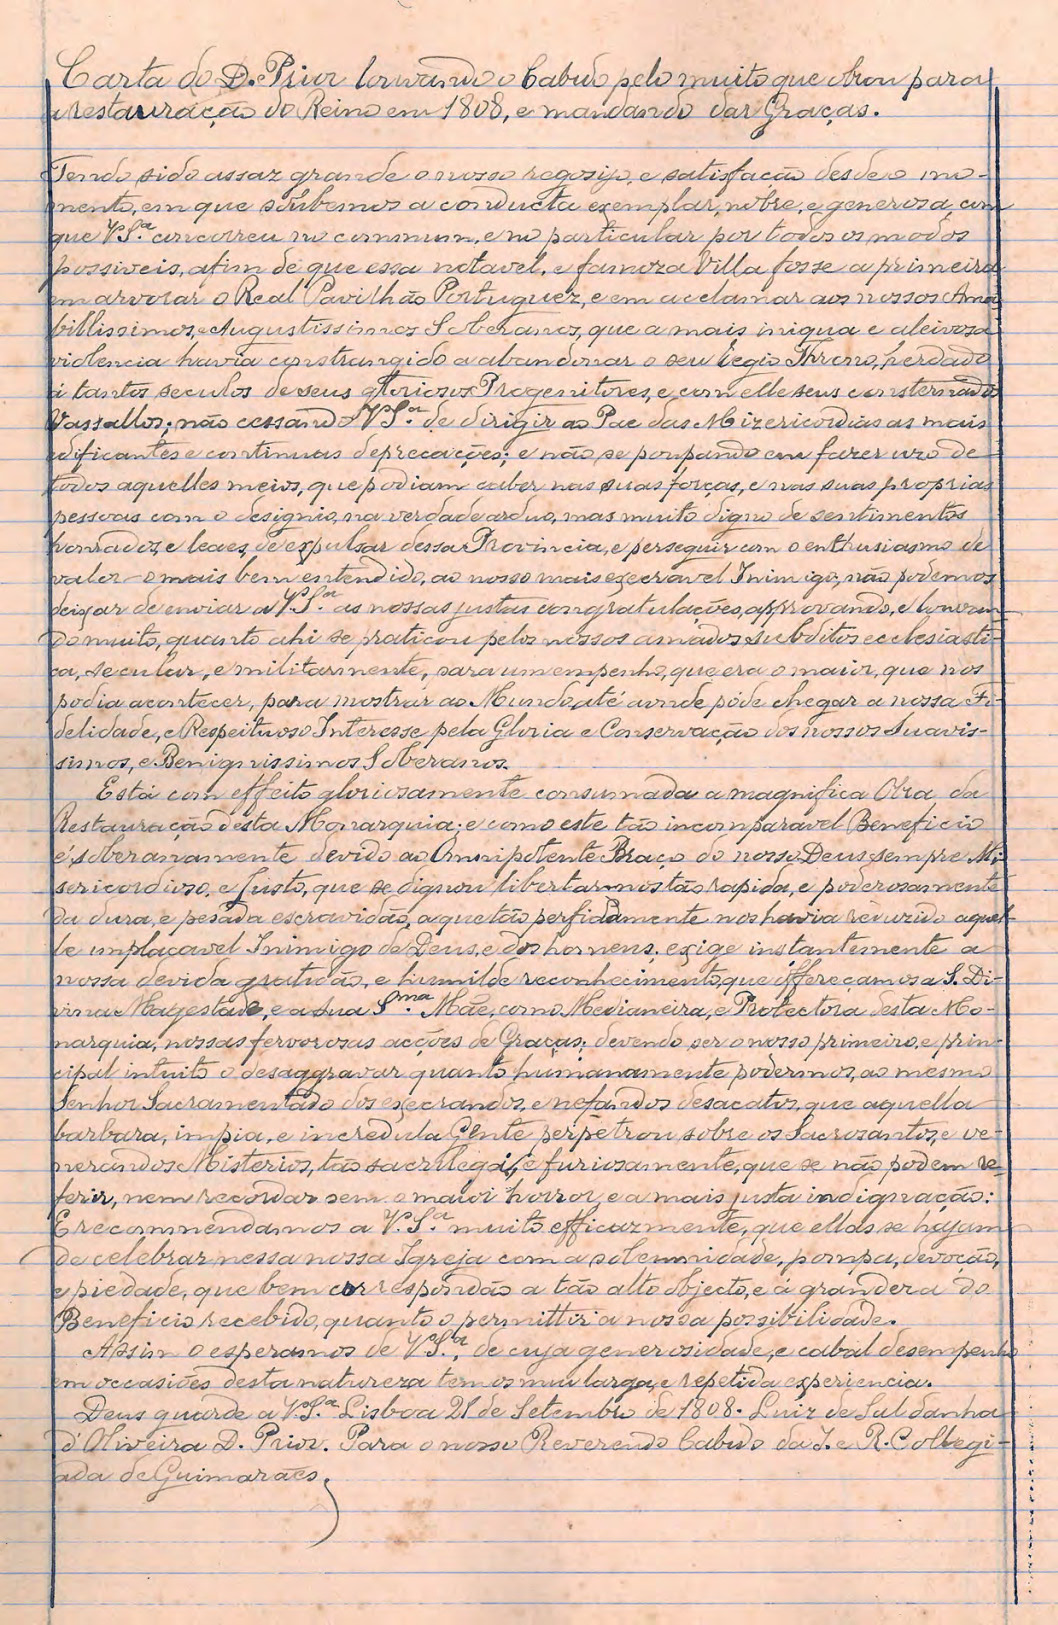 Carta do D. Prior louvando o Cabido pelo muito que obrou para
a restauração do Reino em 1808, e mandando dar Graças.
Tendo sido assaz grande o nosso regosijo, e satisfação desde o mo-
mento, em que soubemos a conducta exemplar, nobre, e generosa, com
que V.S.ª concorreu no commum, e no particular por todos os modos
possiveis, afim de que essa notavel, e famoza Villa fosse a primeira
em arvorar o Real Pavilhão Portuguez, e em acclamar aos nossos Ama-
billissimos, e Augustissimos Soberanos, que a mais iniqua e aleivosa
violencia havia constrangido a abandonar o seu Regio Throno, herdado
á tantos seculos de seus gloriosos Progenitores, e com elle seus consternados
Vassallos; não cessando V.S.ª de dirigir ao Pae das Mizericordias as mais
edificantes e continuas deprecações; e não se poupando em fazer uzo de
todos aquelles meios, que podiam caber nas suas forças, e nas suas proprias
pessoas com o designio, na verdade arduo, mas muito digno de sentimentos
honrados, e leaes, de expulsar dessa Provincia, e perseguir com o enthusiasmo de
valor o mais bem entendido, ao nosso mais execravel Inimigo, não podemos
deixar de enviar a V.S.ª as nossas justas congratulações, approvando, e louvan-
do muito, quanto ahi se praticou pelos nossos amados subditos ecclesiasti-
ca, secular, e militarmente, para um empenho, que era o maior, que nos
podia acontecer, para mostrar ao Mundo, até aonde póde chegar a nossa Fi-
delidade, e Respeituoso Interesse pela Gloria e Conservação dos nossos Suavis-
simos, e Benignissimos Soberanos.
Está com effeito gloriosamente consumada a magnifica Obra da
Restauração desta Monarquia; e como este tão incomparavel Beneficio
é soberanamente devido ao Omnipotente Braço do nosso Deus sempre Mi-
sericordioso, e Justo, que se dignou libertarmos tão rapida, e poderosamente
da dura, e pesada escravidão, a que tão perfidamente nos havia reduzido aquel-
le implacavel Inimigo de Deus, e dos homens; exige instantemente a
nossa devida gratidão, e humilde reconhecimento, que offereçamos a S. Di-
vina Magestade, e a sua S.ma Mãe, como Medianeira, e Protectora desta Mo-
narquia, nossas fervorosas acções de Graças; devendo ser o nosso primeiro, e prin-
cipal intuito o desaggravar quanto humanamente podermos, ao mesmo
Senhor Sacramentado dos execrandos, e nefandos desacatos, que aquella
barbara, impia, e incredula Gente perpetrou sobre os Sacrosantos, e ve-
nerandos Misterios, tão sacrilega, e furiosamente, que se não podem re-
ferir, nem recordar sem o maior horror, e a mais justa indignação:
E recommendamos a V.S.ª muito efficazmente, que ellas se hajam
de celebrar nessa nossa Igreja com a solemnidade, pompa, devoção,
e piedade, que bem correspondão a tão alto objecto, e á grandera do
Beneficio recebido, quanto o permittir a nossa possibilidade.
Assim o esperamos de V.S.ª, de cuja generosidade, e cabal desempenho
em occasiões desta natureza temos mui larga, e repetida experiencia.
Deus guarde a V.S.ª Lisboa 21 de Setembro de 1808. Luiz de Saldanha
d'Oliveira D. Prior. Para o nosso Reverendo Cabido da I. e R. Collegi-
ada de Guimarães.